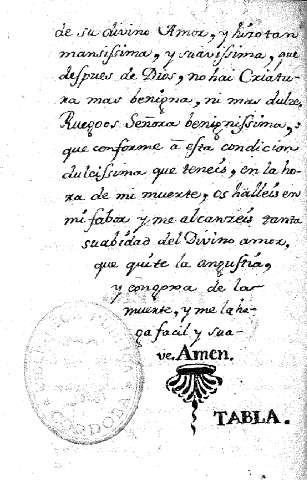 de su divino Amor, y hizo tan
mansissima, y suavissima, que
despues de Dios, no hai Criatu-
ra mas benigna, ni mas dulze,
Ruegoos Señora benignissima,
que conforme â esta condicion
dulcissima que teneis, en la ho-
ra de mi muerte, os halleis en
mi fabor y me alcanzeis tanta
suabidad del Divino amor,
que quite la angustia,
y congoxa de las
muerte, y me la ha-
ga facil y sua-
ve. Amen.
TABLA.
CORDOBA